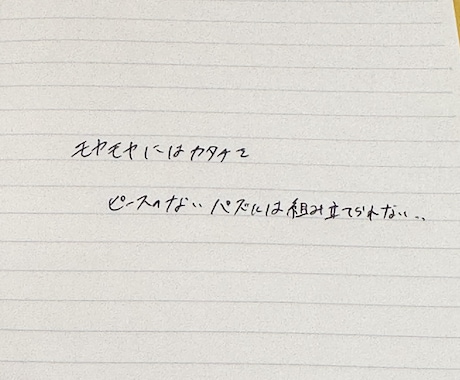 モヤモヤにはカタチを
ピースのない パズルは組み立てられない..